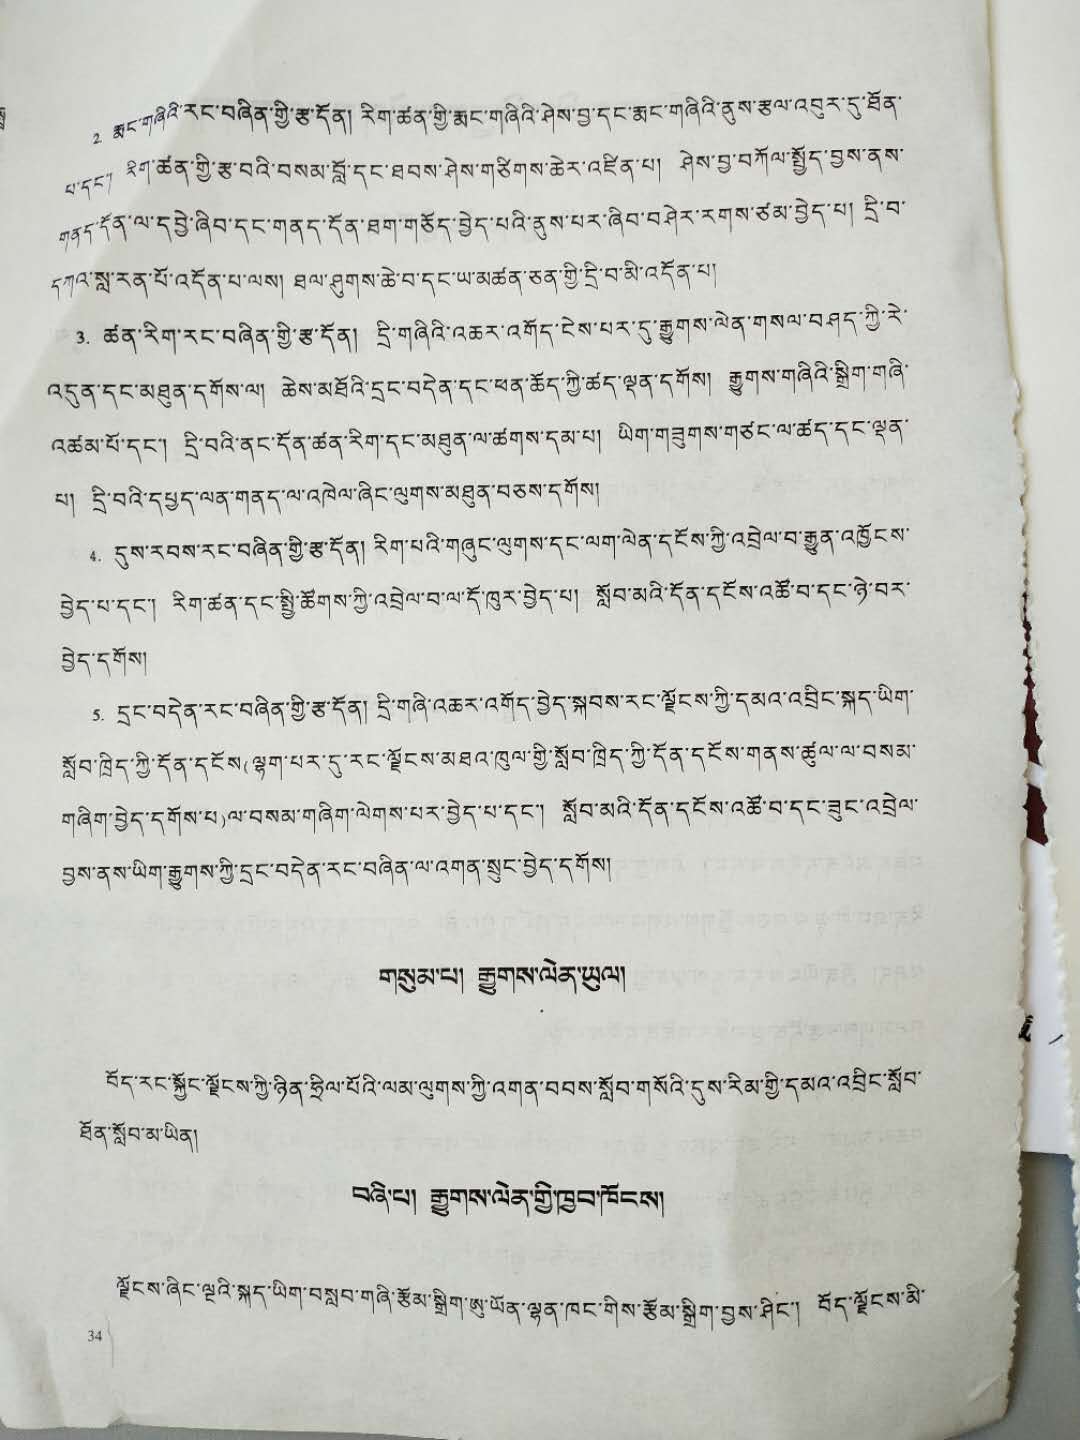 2. རྨང་གཞིའི་རང་བཞིན་གྱི་རྩ་དོན། རིག་ཚན་གྱི་རྨང་གཞིའི་ཤེས་བྱ་དང་རྨང་གཞིའི་ནུས་རྩལ་འབུར་དུ་ཐོན་
པ་དང་། རིག་ཚན་གྱི་རྩ་བའི་བསམ་བློ་དང་ཐབས་ཤེས་གཙིགས་ཆེར་འཛིན་པ། ཤེས་བྱ་བཀོལ་སྤྱོད་བྱས་ནས་
གནད་དོན་ལ་དབྱེ་ཞིབ་དང་གནད་དོན་ཐག་གཅོད་བྱེད་པའི་ནུས་པར་ཞིབ་བཤེར་རགས་ཙམ་བྱེད་པ། དྲི་བ་
དཀའ་སླ་རན་པོ་འདོན་པ་ལས། ཐལ་ཤུགས་ཆེ་བ་དང་ཡ་མཚན་ཅན་གྱི་དྲི་བ་མི་འདོན་པ།
3. ཚན་རིག་རང་བཞིན་གྱི་རྩ་དོན། དྲི་གཞིའི་འཆར་འགོད་ངེས་པར་དུ་རྒྱུགས་ལེན་གསལ་བཤད་ཀྱི་རེ་
འདུན་དང་མཐུན་དགོས་ལ། ཆེས་མཐོའི་དྲང་བདེན་དང་ཕན་ཆོད་ཀྱི་ཚད་ལྡན་དགོས། རྒྱུགས་གཞིའི་སྒྲིག་གཞི་
འཚམ་པོ་དང་། དྲི་བའི་ནང་དོན་ཚན་རིག་དང་མཐུན་ལ་ཚགས་དམ་པ། ཡིག་གཟུགས་གཙང་ལ་ཚད་དང་ལྡན་
པ། དྲི་བའི་དཔྱད་ལན་གནད་ལ་འཁེལ་ཞིང་ལུགས་མཐུན་བཅས་དགོས།
4. དུས་རབས་རང་བཞིན་གྱི་རྩ་དོན། རིག་པའི་གཞུང་ལུགས་དང་ལག་ལེན་དངོས་ཀྱི་འབྲེལ་བ་རྒྱུན་འཁྱོངས་
བྱེད་པ་དང་། རིག་ཚན་དང་སྤྱི་ཚོགས་ཀྱི་འབྲེལ་བ་ལ་དོ་ཁུར་བྱེད་པ། སློབ་མའི་དོན་དངོས་འཚོ་བ་དང་ཉེ་བར་
བྱེད་དགོས།
5. དྲང་བདེན་རང་བཞིན་གྱི་རྩ་དོན། དྲི་གཞི་འཆར་འགོད་བྱེད་སྐབས་རང་ལྗོངས་ཀྱི་དམའ་འབྲིང་སྐད་ཡིག་
སློབ་ཁྲིད་ཀྱི་དོན་དངོས(ལྷག་པར་དུ་རང་ལྗོངས་མཐའ་ཁུལ་གྱི་སློབ་ཁྲིད་ཀྱི་དོན་དངོས་གནས་ཚུལ་ལ་བསམ་
གཞིག་བྱེད་དགོས་པ)ལ་བསམ་གཞིག་ལེགས་པར་བྱེད་པ་དང་། སློབ་མའི་དོན་དངོས་འཚོ་བ་དང་ཟུང་འབྲེལ་
བྱས་ནས་ཡིག་རྒྱུགས་ཀྱི་དྲང་བདེན་རང་བཞིན་ལ་འགན་སྲུང་བྱེད་དགོས།
གསུམ་པ། རྒྱུགས་ལེན་ཡུལ།
བོད་རང་སྐྱོང་ལྗོངས་ཀྱི་ཉིན་ཧྲིལ་པོའི་ལམ་ལུགས་ཀྱི་འགན་བབས་སློབ་གསོའི་དུས་རིམ་གྱི་དམའ་འབྲིང་སློབ་
ཐོན་སློབ་མ་ཡིན།
བཞི་པ། རྒྱུགས་ལེན་གྱི་ཁྱབ་ཁོངས།
ལྗོངས་ཞིང་ལྔའི་སྐད་ཡིག་བསླབ་གཞི་རྩོམ་སྒྲིག་ཨུ་ཡོན་ལྷན་ཁང་གིས་རྩོམ་སྒྲིག་བྱས་ཤིང་། བོད་ལྗོངས་མི་
34